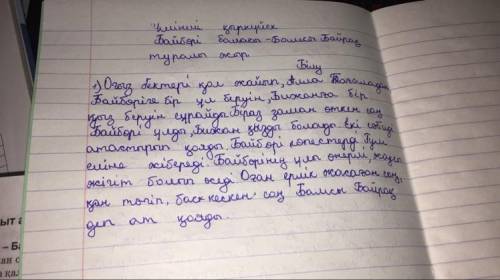 Үшінші қыркүйек
Байбөрі баласы - Бамсы Байрақ
туралы жыр.
Білу
1) Оғыз бектері қол жайып, Алла Тағаладан
Байбөріге бір ұл беруін, Бижанға бір
қыз беруін сұрайды. Біраз заман өткен соң
Байбөрі ұлды, Бижан қызды болады екі сәбиді
атастырып қояды. Байбөрі көпестерді Рум
еліне жібереді. Байбөрінің ұлы өнерлі, жақсы
жігіт болып өседі. Оған ерлік жасаған соң,
қан төгіп, бас кескен соң Бамсы Байрақ
деп ат қояды.
ЫТ
– Ба